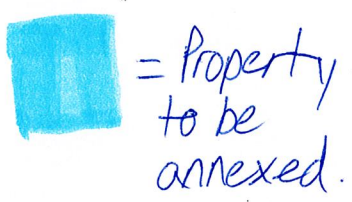 = Property
to be
annexed.